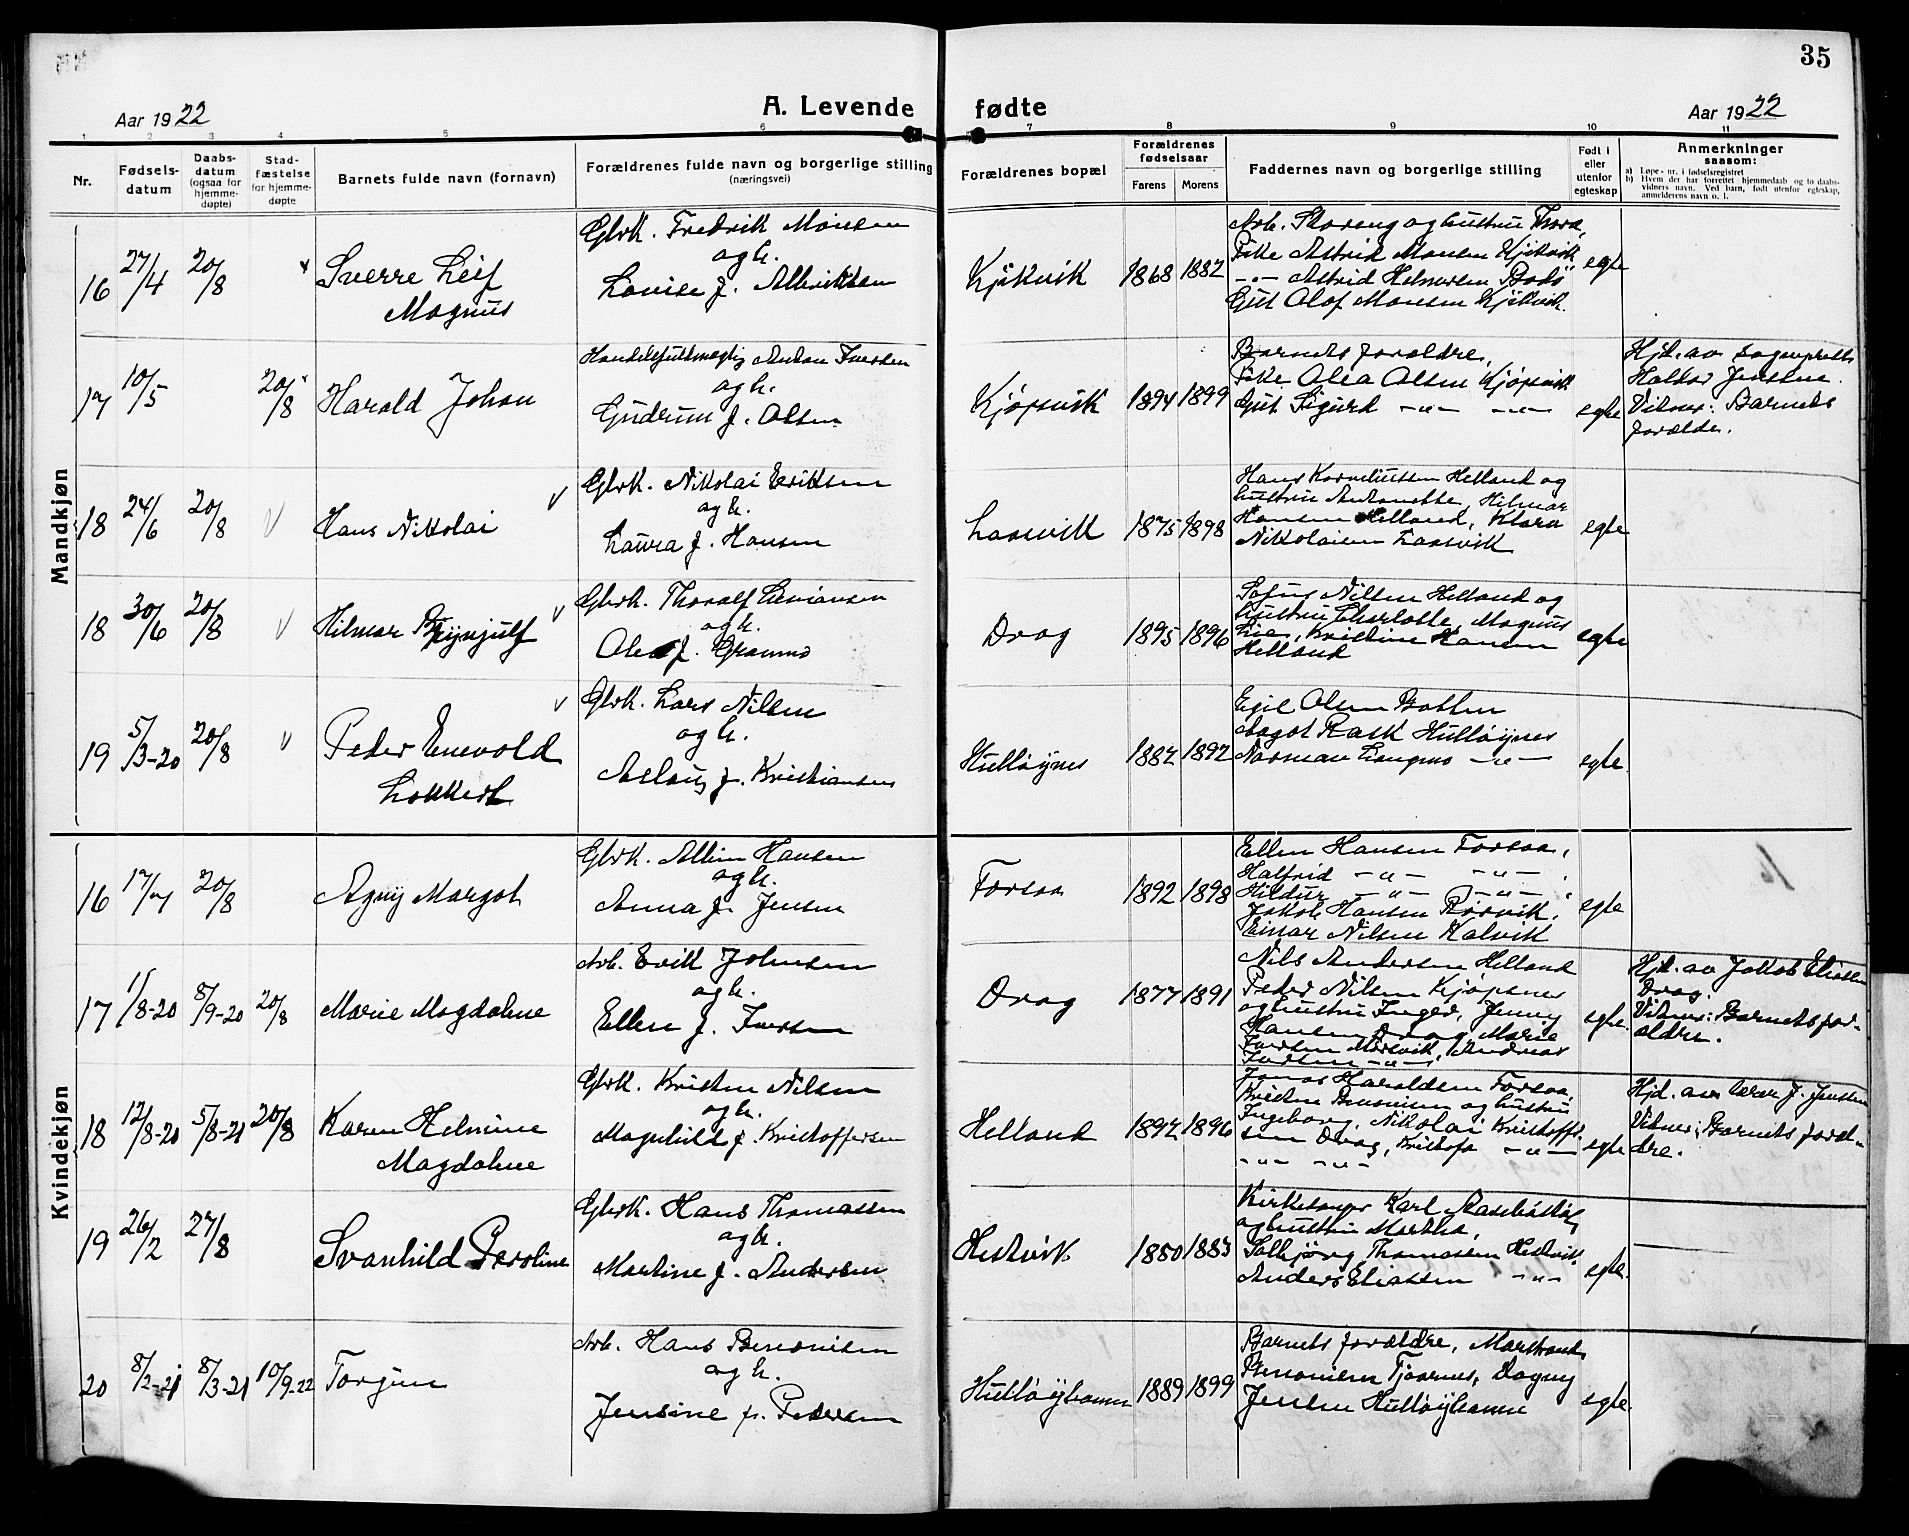 35
Aar 1922
A. Levende fødte
Aar 1922
1 2 3 4 5 6 7 8 9 10 11
Nr.
Fødsels-
datum
Daabs-
datum
(ogsaa for
hjemme-
døpte)
Stad-
fæstelse
for hjemme-
døpte
Barnets fulde navn (fornavn)
Forældrenes fulde navn og borgerlige stilling
(næringsvei)
Forældrenes bopæl
Forældrenes
fødselsaar
Farens
Morens
Faddernes navn og borgerlige stilling
Født i
eller
utenfor
egteskap
Anmerkninger
saasom:
a) Løpe-nr. i fødselsregistret
b) Hvem der har forrettet hjemmedaab og to daabs-
vidners navn. Ved barn, født utenfor egteskap,
anmelderens navn o. l.
Mandkjøn
16 27/4 20/8
Sverre Leif
Magnus
Gbrk. Fredrik Monsen
og h.
Lovise f. Albriktsen
Kjøkvik 1868 1882
Arb. Storeng og hustru Thora,
Pike Astrid Monsen Kjøkvik
-"- Astrid Helmersen Bodø
Gut Olof Monsen Kjøkvik.
egte
17 10/5 20/8
Harold Johan
Handelsfuldmegtig Anton Iversen
og h.
Gudrun f. Olsen
Kjøpsvik 1894 1899
Barnets forældre,
Pike Olea Olsen Kjøpsvik
Gut Sigurd -"- -"-
egte
Hjd. av sogneprest
Halvor Jensen.
Vitner: Barnets
forældre.
18 24/6 20/8
Hans Nikolai
Gbrk. Nikolai Eriksen
og h.
Laura f. Hansen
Laasvik 1875 1898
Hans Korneliussen Helland og
hustru Antonette, Hilmar
Hansen Helland, Klara
Nikolaisen Laasvik
egte
18 30/6 20/8
Hilmar Brynjulf
Gbrk. Thoralf Liviansen
og h.
Olea f. Gramno
Drag 1895 1896
Sofus Nilsen Helland og
hustru Charlotte, Magnus
Lies, Kristine Hansen
Helland
egte
19 5/3-20 20/8
Peder Enevold
Lokkert
Gbrk. Lars Nilsen
og h.
Aslaug f. Kristiansen
Hulløynes 1882 1892
Egil Olsen Botten
Aagot Rask Hulløynes
Norman Langmo -"-
egte.
Kvindekjøn
16 17/7 20/8
Agny Margot
Gbrk. Albin Hansen
og h.
Anna f. Jensen
Forsaa 1892 1898
Ellen Hansen Forsaa,
Halfrid -"- -"-,
Hildur -"- -"-,
Jakob Hansen Rørvik,
Einar Nilsen Kalvik
egte
17 1/8-20 8/9-20 20/8
Marie Magdalene
Arb. Erik Johnsen
og h.
Ellen f. Iversen
Drag 1877 1891
Nils Andersen Helland
Peder Nilsen Kjøpsnes
og hustru Inger, Jenny
Hansen Drag, Marie
Iversen Mørsvik, Andreas
Iversen -"-
egte.
Hjd. av Jakob Eliassen
Drag.
Vitner: Barnets for-
ældre.
18 12/8-20 5/8-21 20/8
Karen Helmine
Magdalene
Gbrk. Kristen Nilsen
og h.
Magnhild f. Kristoffersen
Helland 1892 1896
Jonas Haraldsen Forsaa,
Kristen Benonisen og hustru
Ingeborg, Nikolai Kristoffer-
sen Drag, Kristofa -"-
-"- -"-
egte
Hjd. av lærer J. Jensen
Vitner: Barnets foræl-
dre.
19 26/2 27/8
Svanhild Peroline
Gbrk. Hans Thomassen
og h.
Martine f. Andersen
Hestvik 1880 1883
Kirkesanger Karl
og hustru Martha,
Solbjørg Thomassen Hestvik,
Anders Eliassen -"-
egte.
20 8/2-21 8/3-21 10/9-22
Torgun
Arb. Hans Benonisen
og h.
Jensine f. Pedersen
Hulløyhamn 1889 1899
Barnets forældre, Marstrand
Benonisen Tjaarnes, Dagny
Jensen Hulløyhamn
egte.